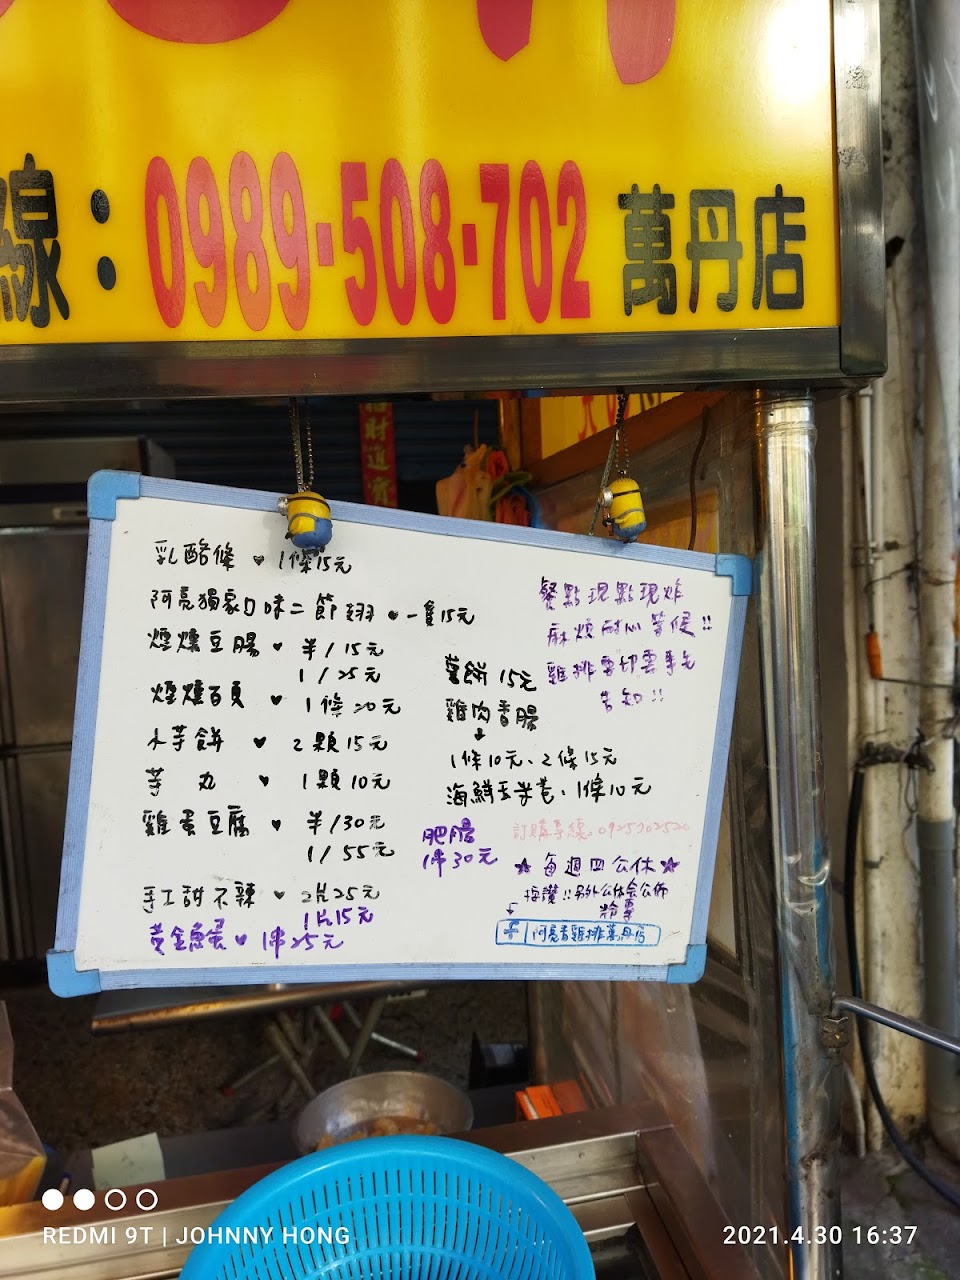 線：0989-508-702 萬丹店
財進寶
乳酪條 ♥ 1條15元
阿亮獨家口味二節翅 ♥ 一隻15元
煙燻豆腸 ♥ 半/15元
1/25元
煙燻百頁 ♥ 1條20元
小芋餅 ♥ 2顆15元
芋丸 ♥ 1顆10元
雞蛋豆腐 ♥ 半/30元
1/55元
手工甜不辣 ♥ 2片25元
1片15元
黃金魚蛋 ♥ 1串25元
餐點現點現炸
麻煩耐心等候!!
雞排要切需事先
告知!!
薯餅 15元
雞肉香腸
1條10元、2條15元
海鮮玉米卷、1條10元
肥腸
1串30元
訂購專線:0925702520
★每週四公休★
按讚!!另外公休會公佈
粉專
f 阿亮香雞排萬丹店
REDMI 9T | JOHNNY HONG
2021.4.30 16:37